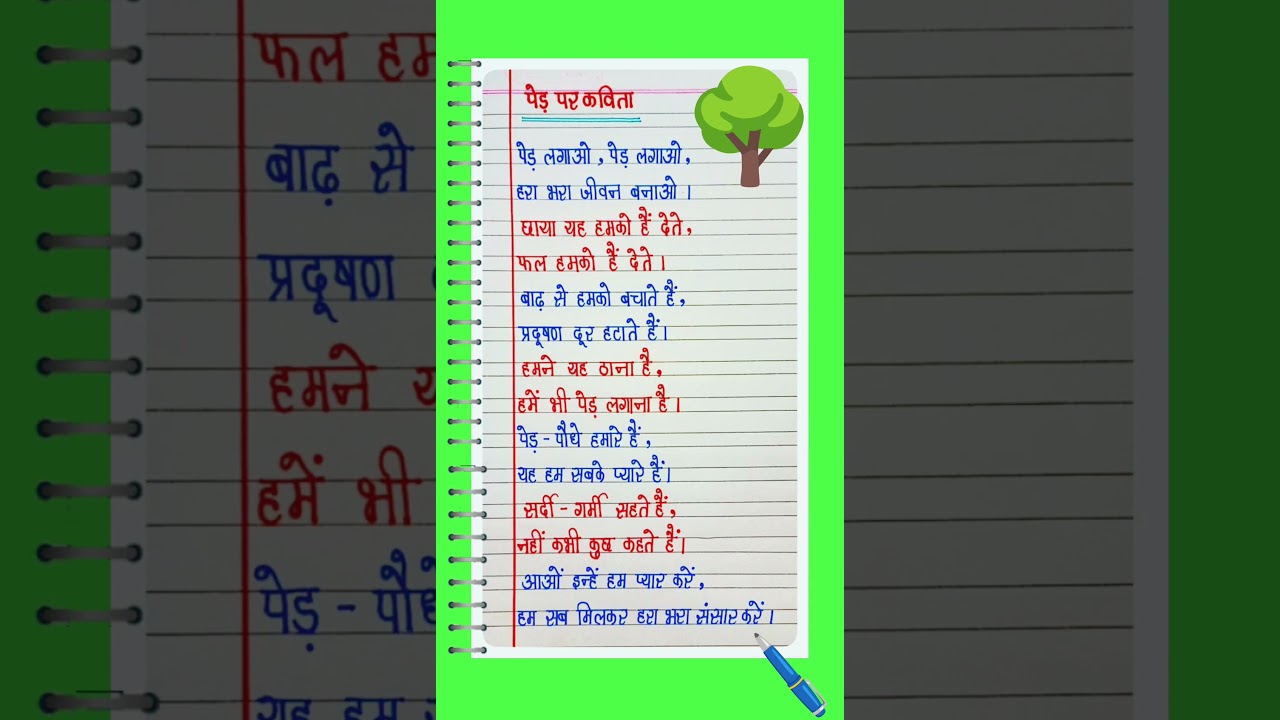 पेड़ पर कविता
पेड़ लगाओ, पेड़ लगाओ,
हरा भरा जीवन बनाओ ।
छाया यह हमको हैं देते,
फल हमको हैं देते ।
बाढ़ से हमको बचाते हैं,
प्रदूषण दूर हटाते हैं।
हमने यह ठाना है,
हमें भी पेड़ लगाना है ।
पेड़ - पौधे हमारे हैं,
यह हम सबके प्यारे हैं।
सर्दी - गर्मी सहते हैं,
नहीं कभी कुछ कहते हैं।
आओं इन्हें हम प्यार करें,
हम सब मिलकर हरा भरा संसार करें ।
फल हम
बाढ़ से
प्रदूषण
हमने
हमें भी
पेड़ - पौधे